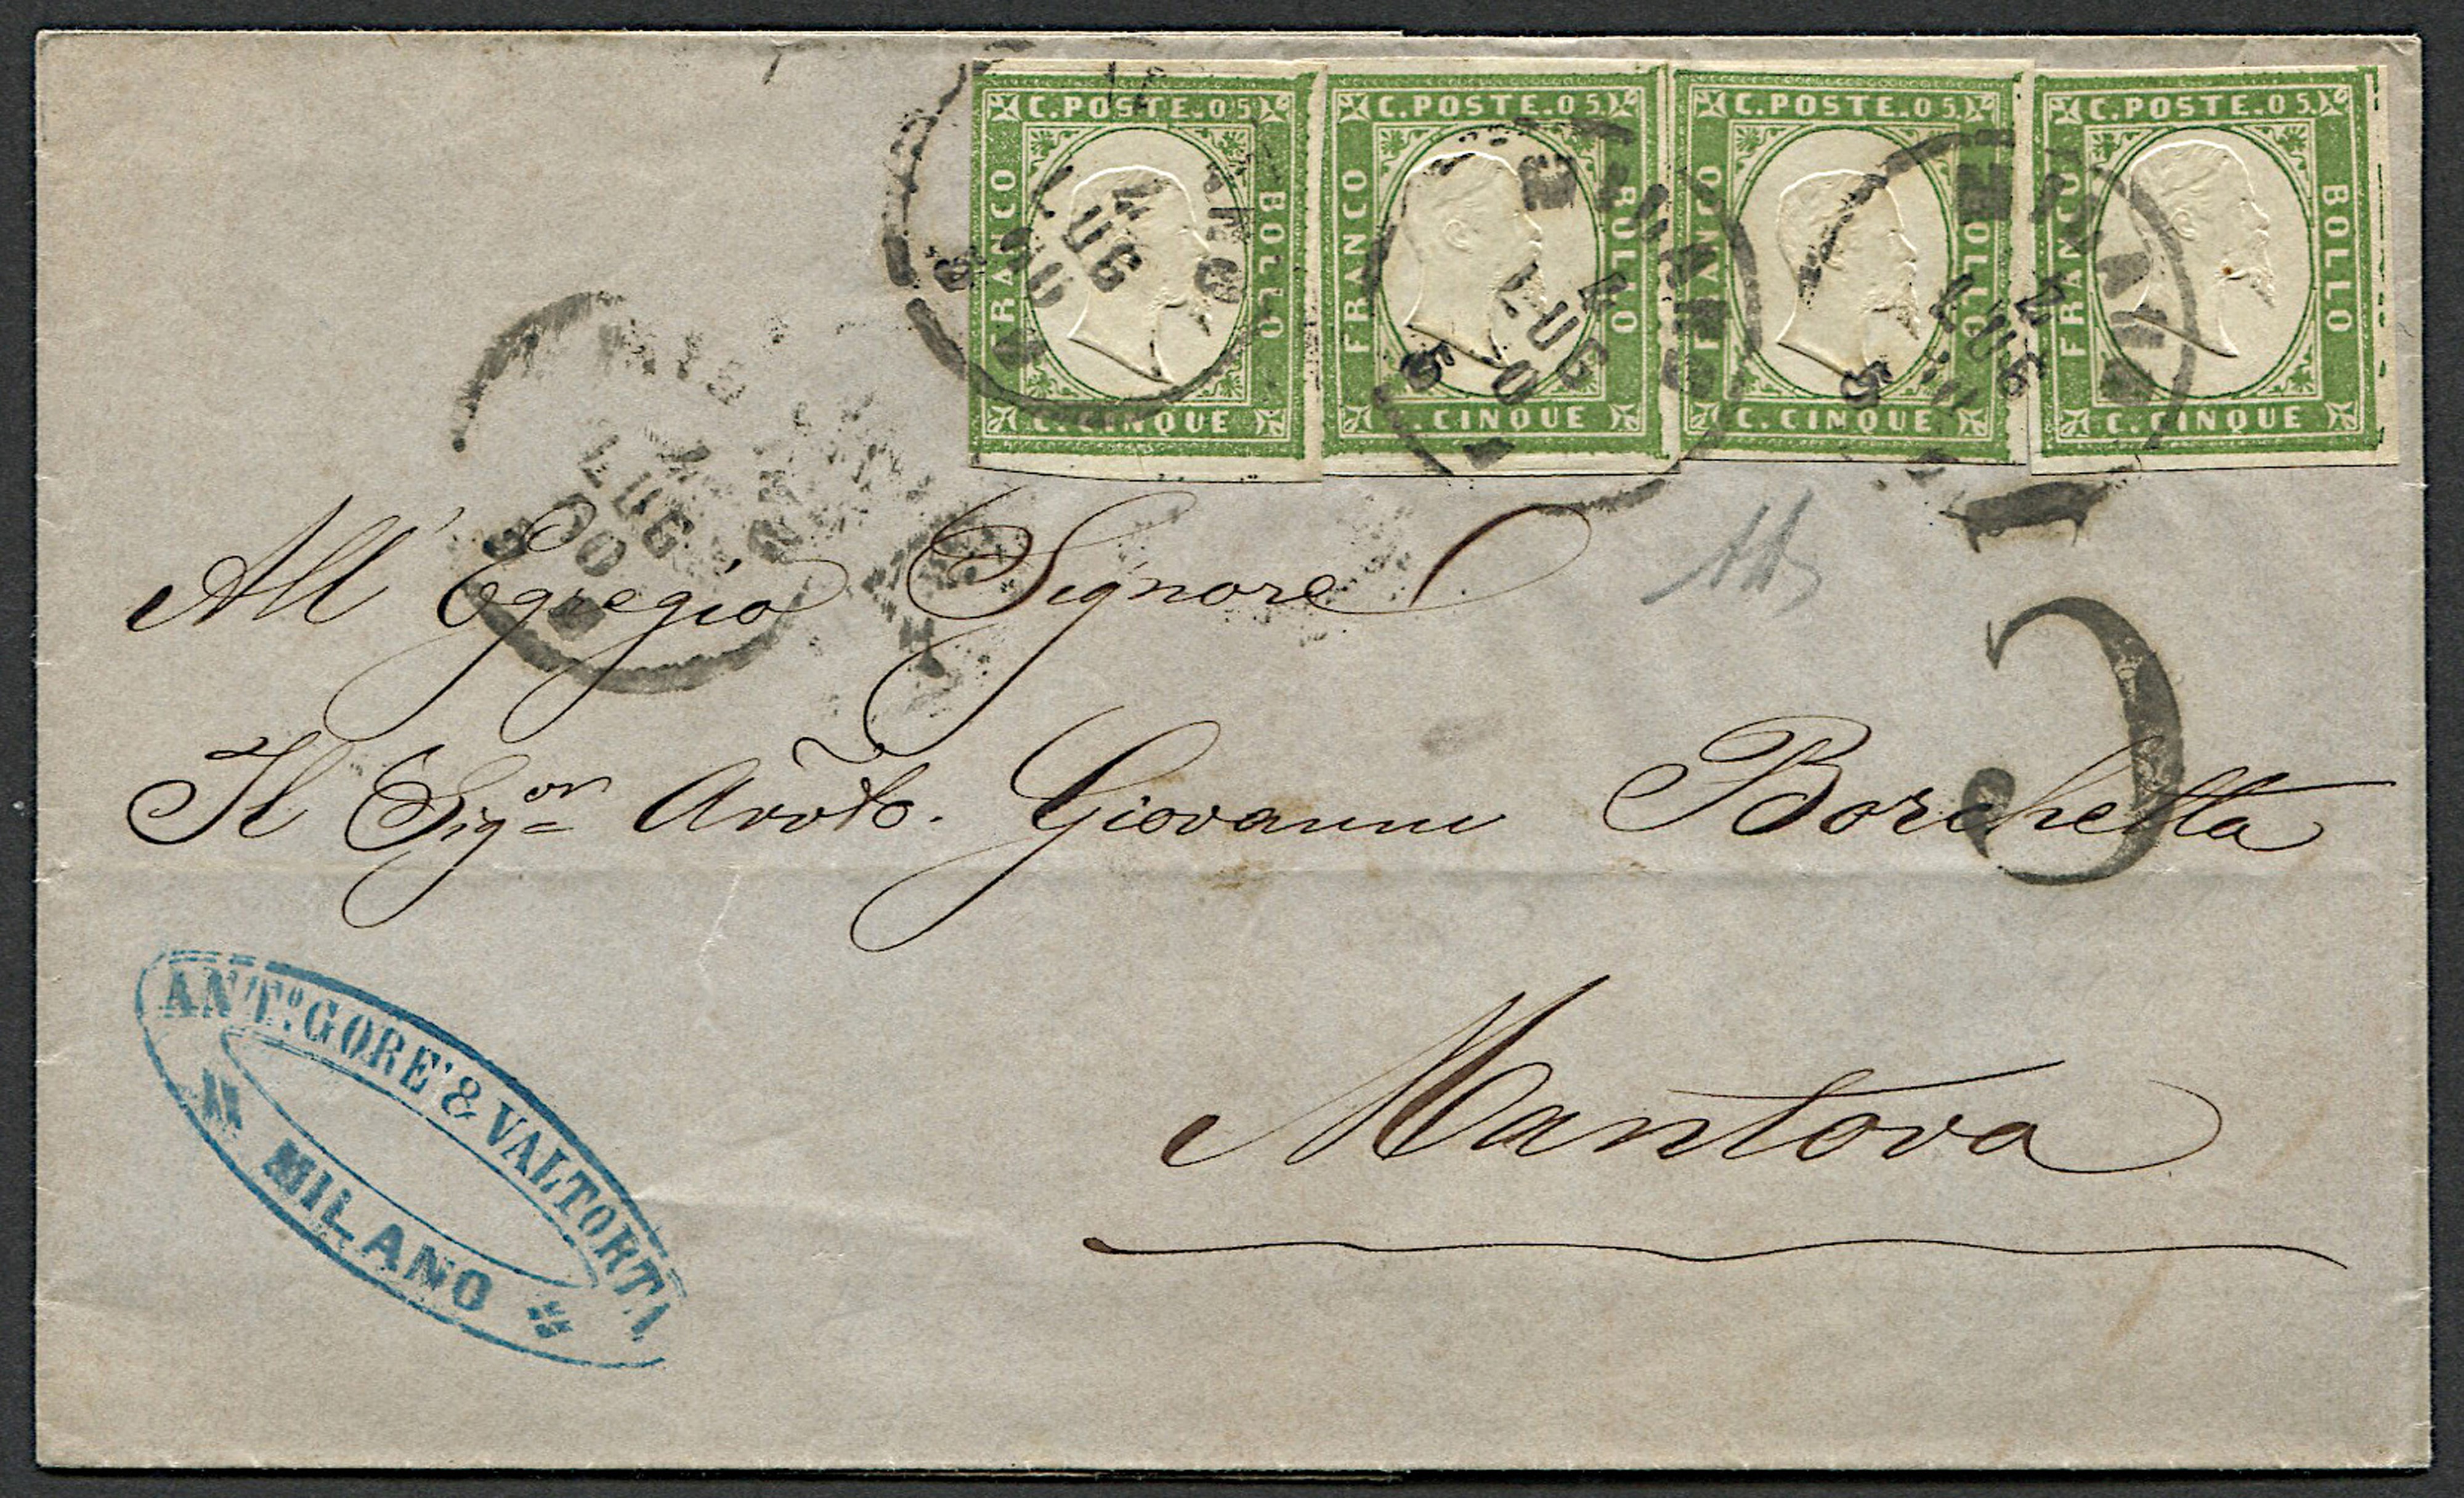 C. POSTE. 05. C. POSTE. 05. C. POSTE. 05. C. POSTE. 05.
FRANCO BOLLO FRANCO BOLLO FRANCO BOLLO FRANCO BOLLO
C. CINQUE C. CINQUE C. CINQUE C. CINQUE
4 LUG 60
4 LUG 60
4 LUG
4 LUG 60
All' Egregio Signore
5
Il Sigor Avvto. Giovanni Borchetta
Mantova
ANTO. GORE' & VALTORTA
MILANO